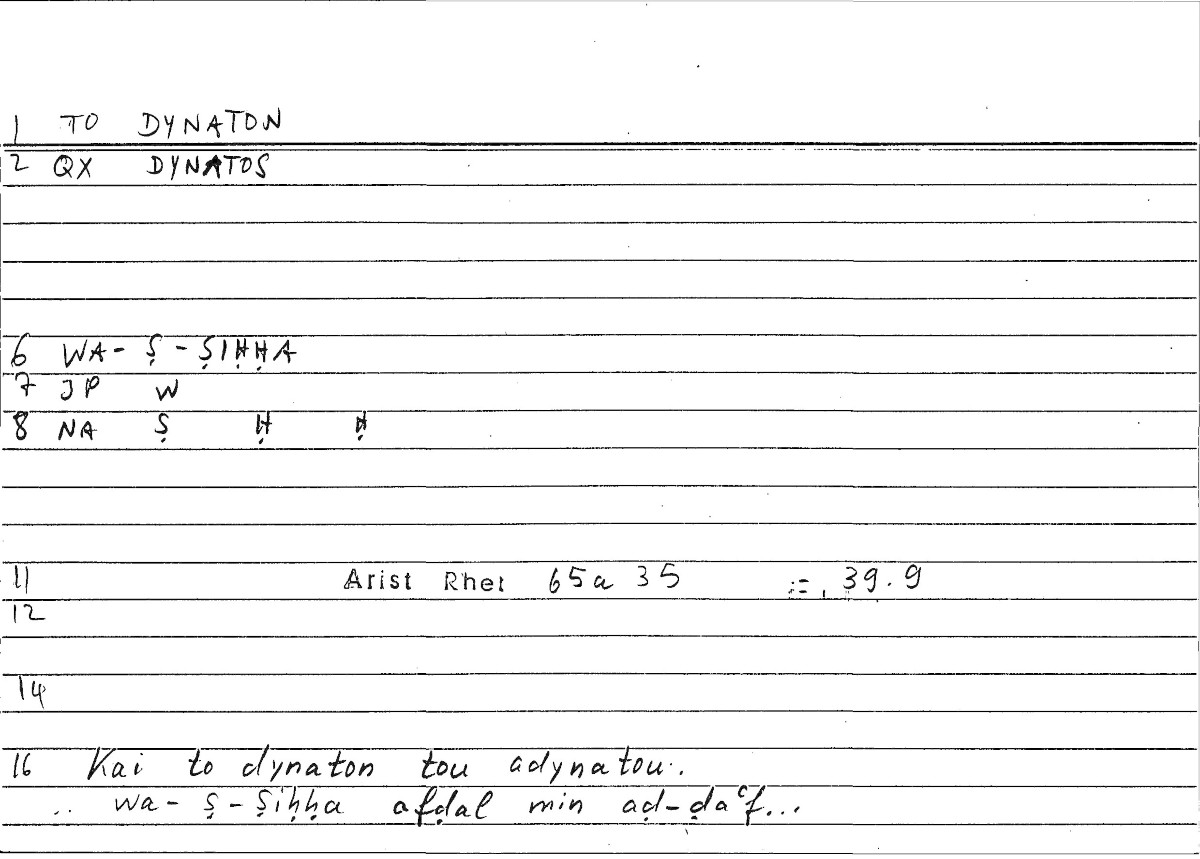 1 TO DYNATON
2 QX DYNATOS
6 WA- Ṣ - ṢIḤḤA
7 JP W
8 NA Ṣ Ḥ Ḥ
11 Arist Rhet 65a 35 := 39.9
12
14
16 Kai to dynaton tou adynatou.
.. wa- ṣ - ṣiḥḥa afḍal min aḍ-ḍaʿf...